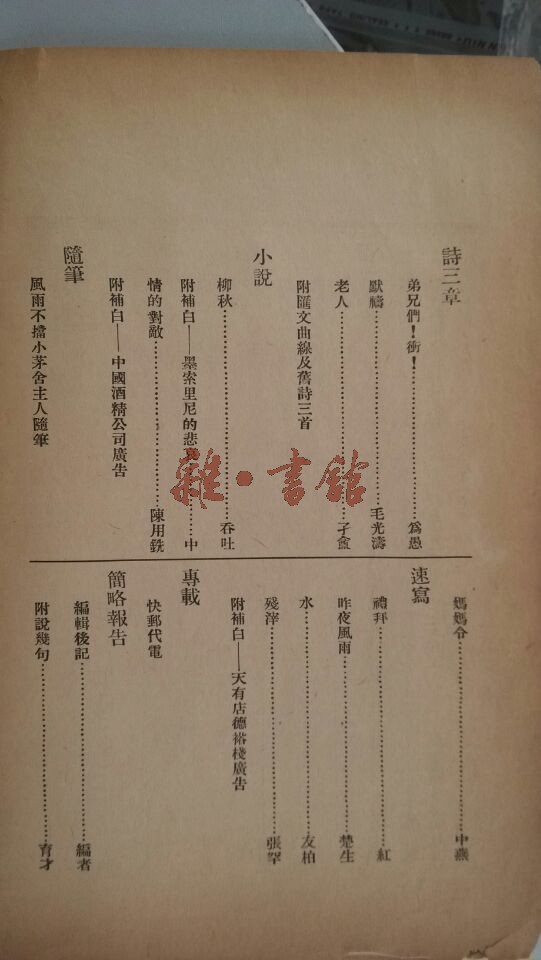 詩三章
弟兄們！衝！……爲愚
默禱……毛光濤
老人……子僉
附匯文曲線及舊詩三首
小說
柳秋……吞吐
附補白——墨索里尼的悲哀……中
情的對敵……陳用銑
附補白——中國酒精公司廣告
隨筆
風雨不擋小茅舍主人隨筆
媽媽令……中燕
速寫
禮拜……紅
昨夜風雨……楚生
水……友柏
殘滓……張罕
附補白——天有店德裕棧廣告
專載
快郵代電
簡略報告
編輯後記……編者
附說幾句……育才
雜·書館